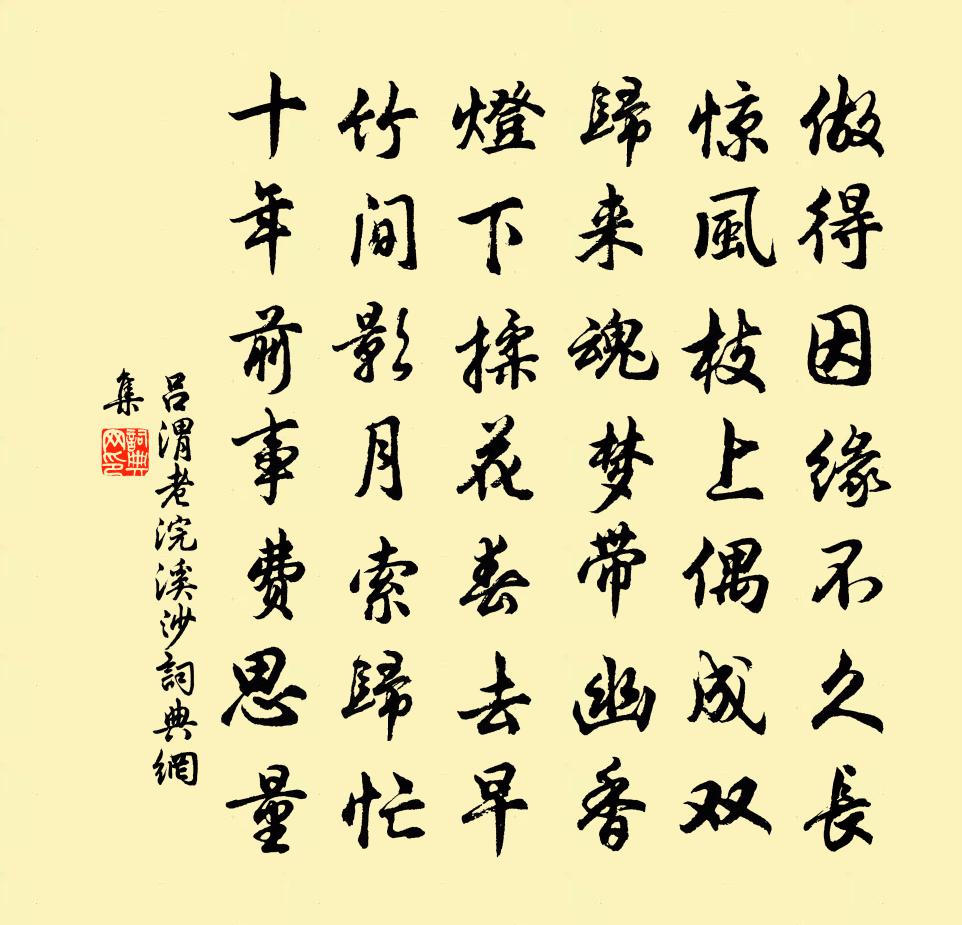 做得因缘不久長
惊風枝上偶成双
歸来魂梦带幽香
燈下揉花春去早
竹间影月索歸忙
十年前事费思量
吕渭老浣溪沙詞典網
集
詞典网印